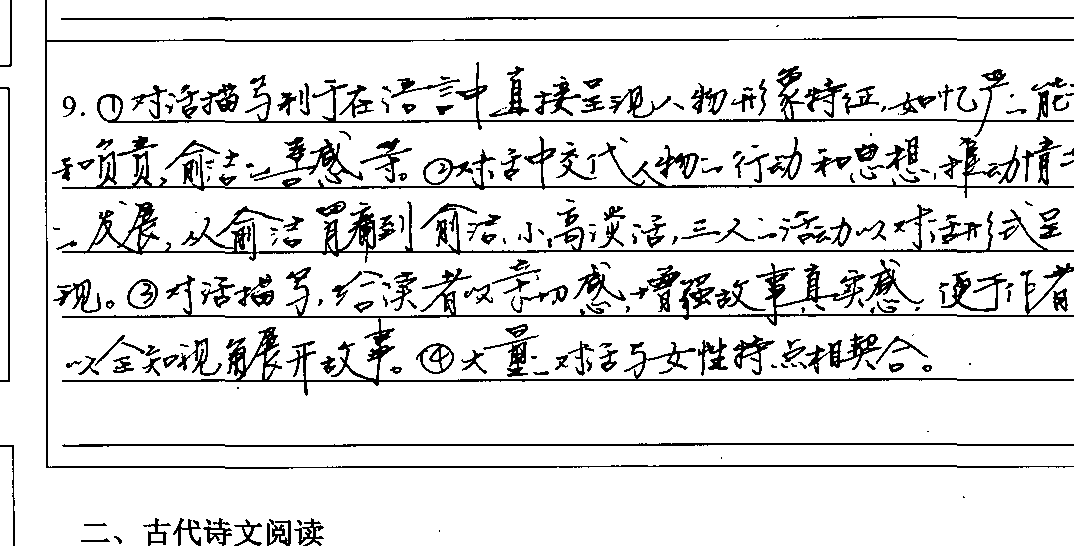 9.①对话描写利于在语言中直接呈现人物形象特征,如忆严的能
和负责,俞洁的善感等。②对话中交代人物的行动和思想,推动情节
的发展,从俞洁胃痛到俞洁、小高谈话,三人的活动以对话形式呈
现。③对话描写,给读者以亲切感,增强故事真实感,便于作者
以全知视角展开故事。④大量的对话与女性特点相契合。
二、古代诗文阅读